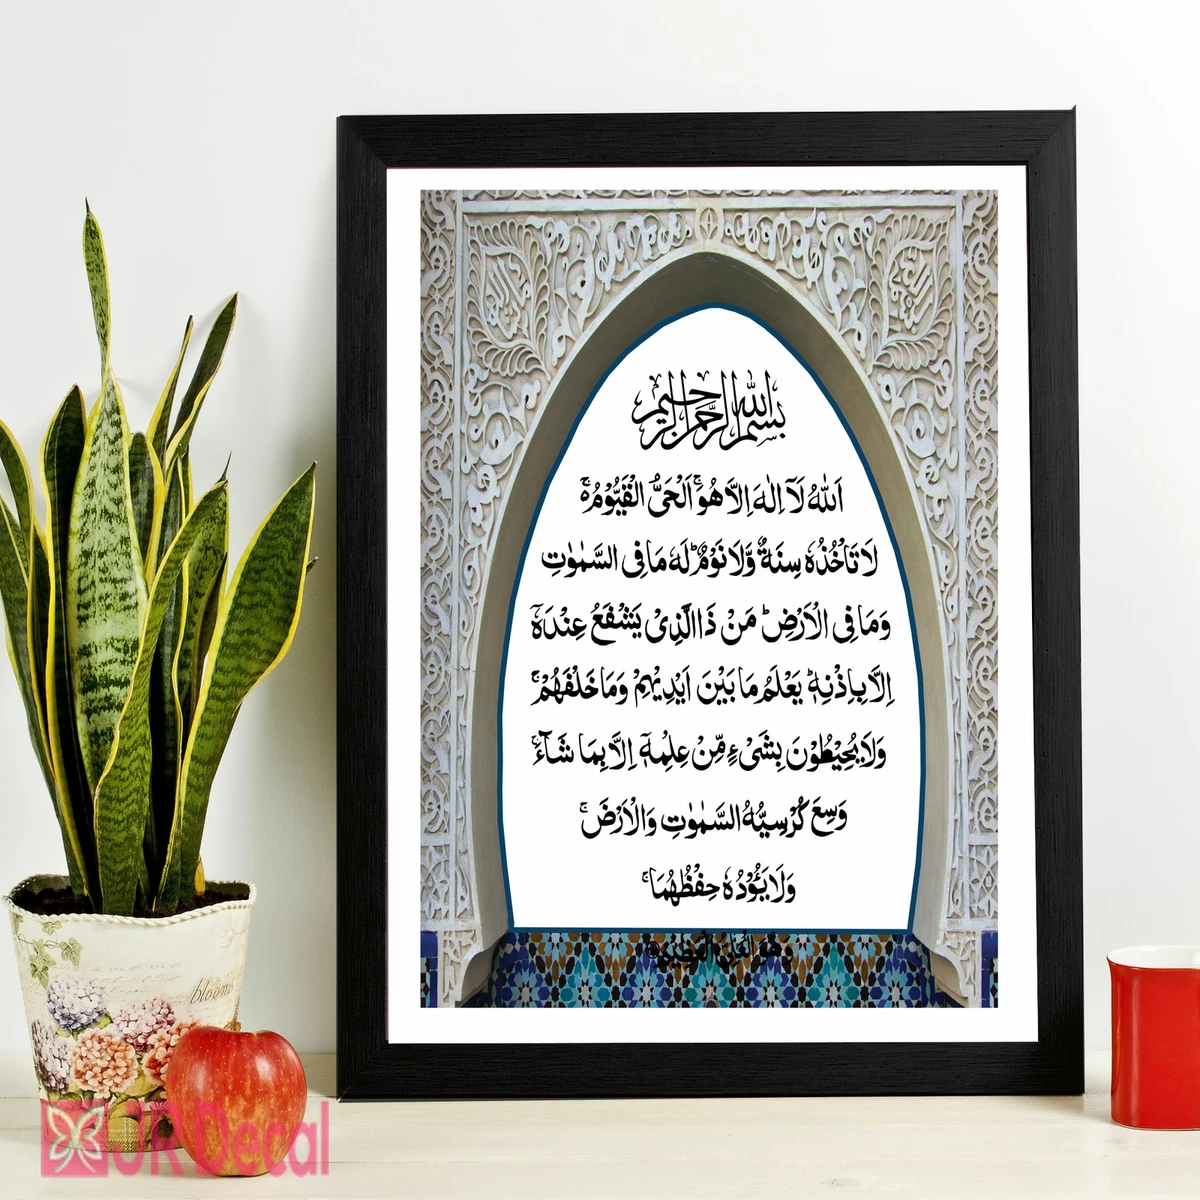 بسم الله الرحمن الرحيم
اَللّٰهُ لَآ اِلٰهَ اِلَّا هُوَۚ اَلْحَيُّ الْقَيُّوْمُ ەۚ
لَا تَاْخُذُهٗ سِنَةٌ وَّلَا نَوْمٌؕ لَهٗ مَا فِى السَّمٰوٰتِ
وَمَا فِى الْاَرْضِؕ مَنْ ذَا الَّذِىْ يَشْفَعُ عِنْدَهٗۤ
اِلَّا بِاِذْنِهٖؕ يَعْلَمُ مَا بَيْنَ اَيْدِيْهِمْ وَمَا خَلْفَهُمْۚ
وَلَا يُحِيْطُوْنَ بِشَىْءٍ مِّنْ عِلْمِهٖۤ اِلَّا بِمَا شَآءَۚ
وَسِعَ كُرْسِيُّهُ السَّمٰوٰتِ وَالْاَرْضَۚ
وَلَا يَـُٔوْدُهٗ حِفْظُهُمَاۚ
وَهُوَ الْعَلِىُّ الْعَظِيْمُ
bloom
UR Decal